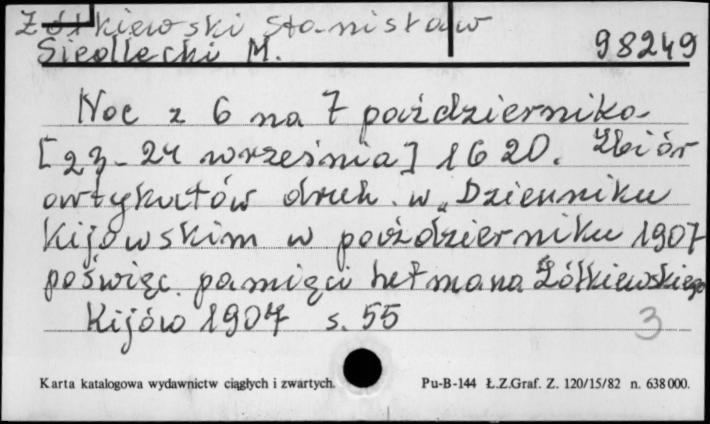 Żółkiewski Stanisław
Siedlecki M. 98249
Noc z 6 na 7 października
[23-24 września] 1620. Zbiór
artykułów druk. w „Dzienniku
Kijowskim w październiku 1907
poświęc. pamięci hetmana Żółkiewskiego
Kijów 1907 s. 55
3
Karta katalogowa wydawnictw ciągłych i zwartych. Pu-B-144 Ł.Z.Graf. Z. 120/15/82 n. 638000.